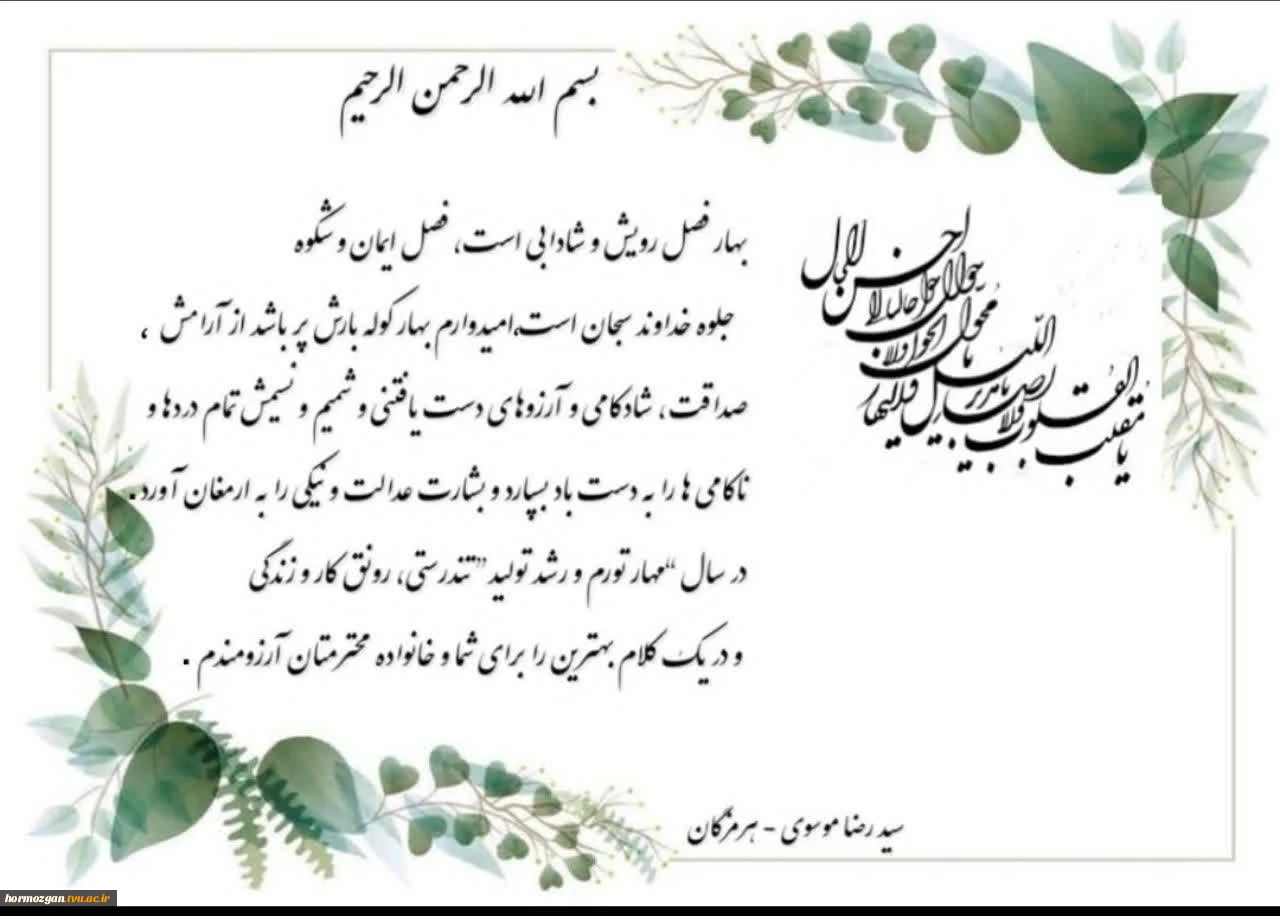 بسم الله الرحمن الرحیم
یا مقلب القلوب و الابصار
یا مدبر اللیل و النهار
یا محول الحول و الاحوال
حول حالنا الی احسن الحال
بهار فصل رویش و شادابی است، فصل ایمان و شکوه
جلوه خداوند سبحان است،امیدوارم بهار کوله بارش پر باشد از آرامش ،
صداقت ، شادکامی و آرزوهای دست یافتنی و شمیم و نسیمش تمام دردها و
ناکامی ها را به دست باد بسپارد و بشارت عدالت و نیکی را به ارمغان آورد.
در سال “مهار تورم و رشد تولید” تندرستی، رونق کار و زندگی
و در یک کلام بهترین را برای شما و خانواده محترمتان آرزومندم .
سید رضا موسوی - هرمزگان
hormozgan.tvu.ac.ir